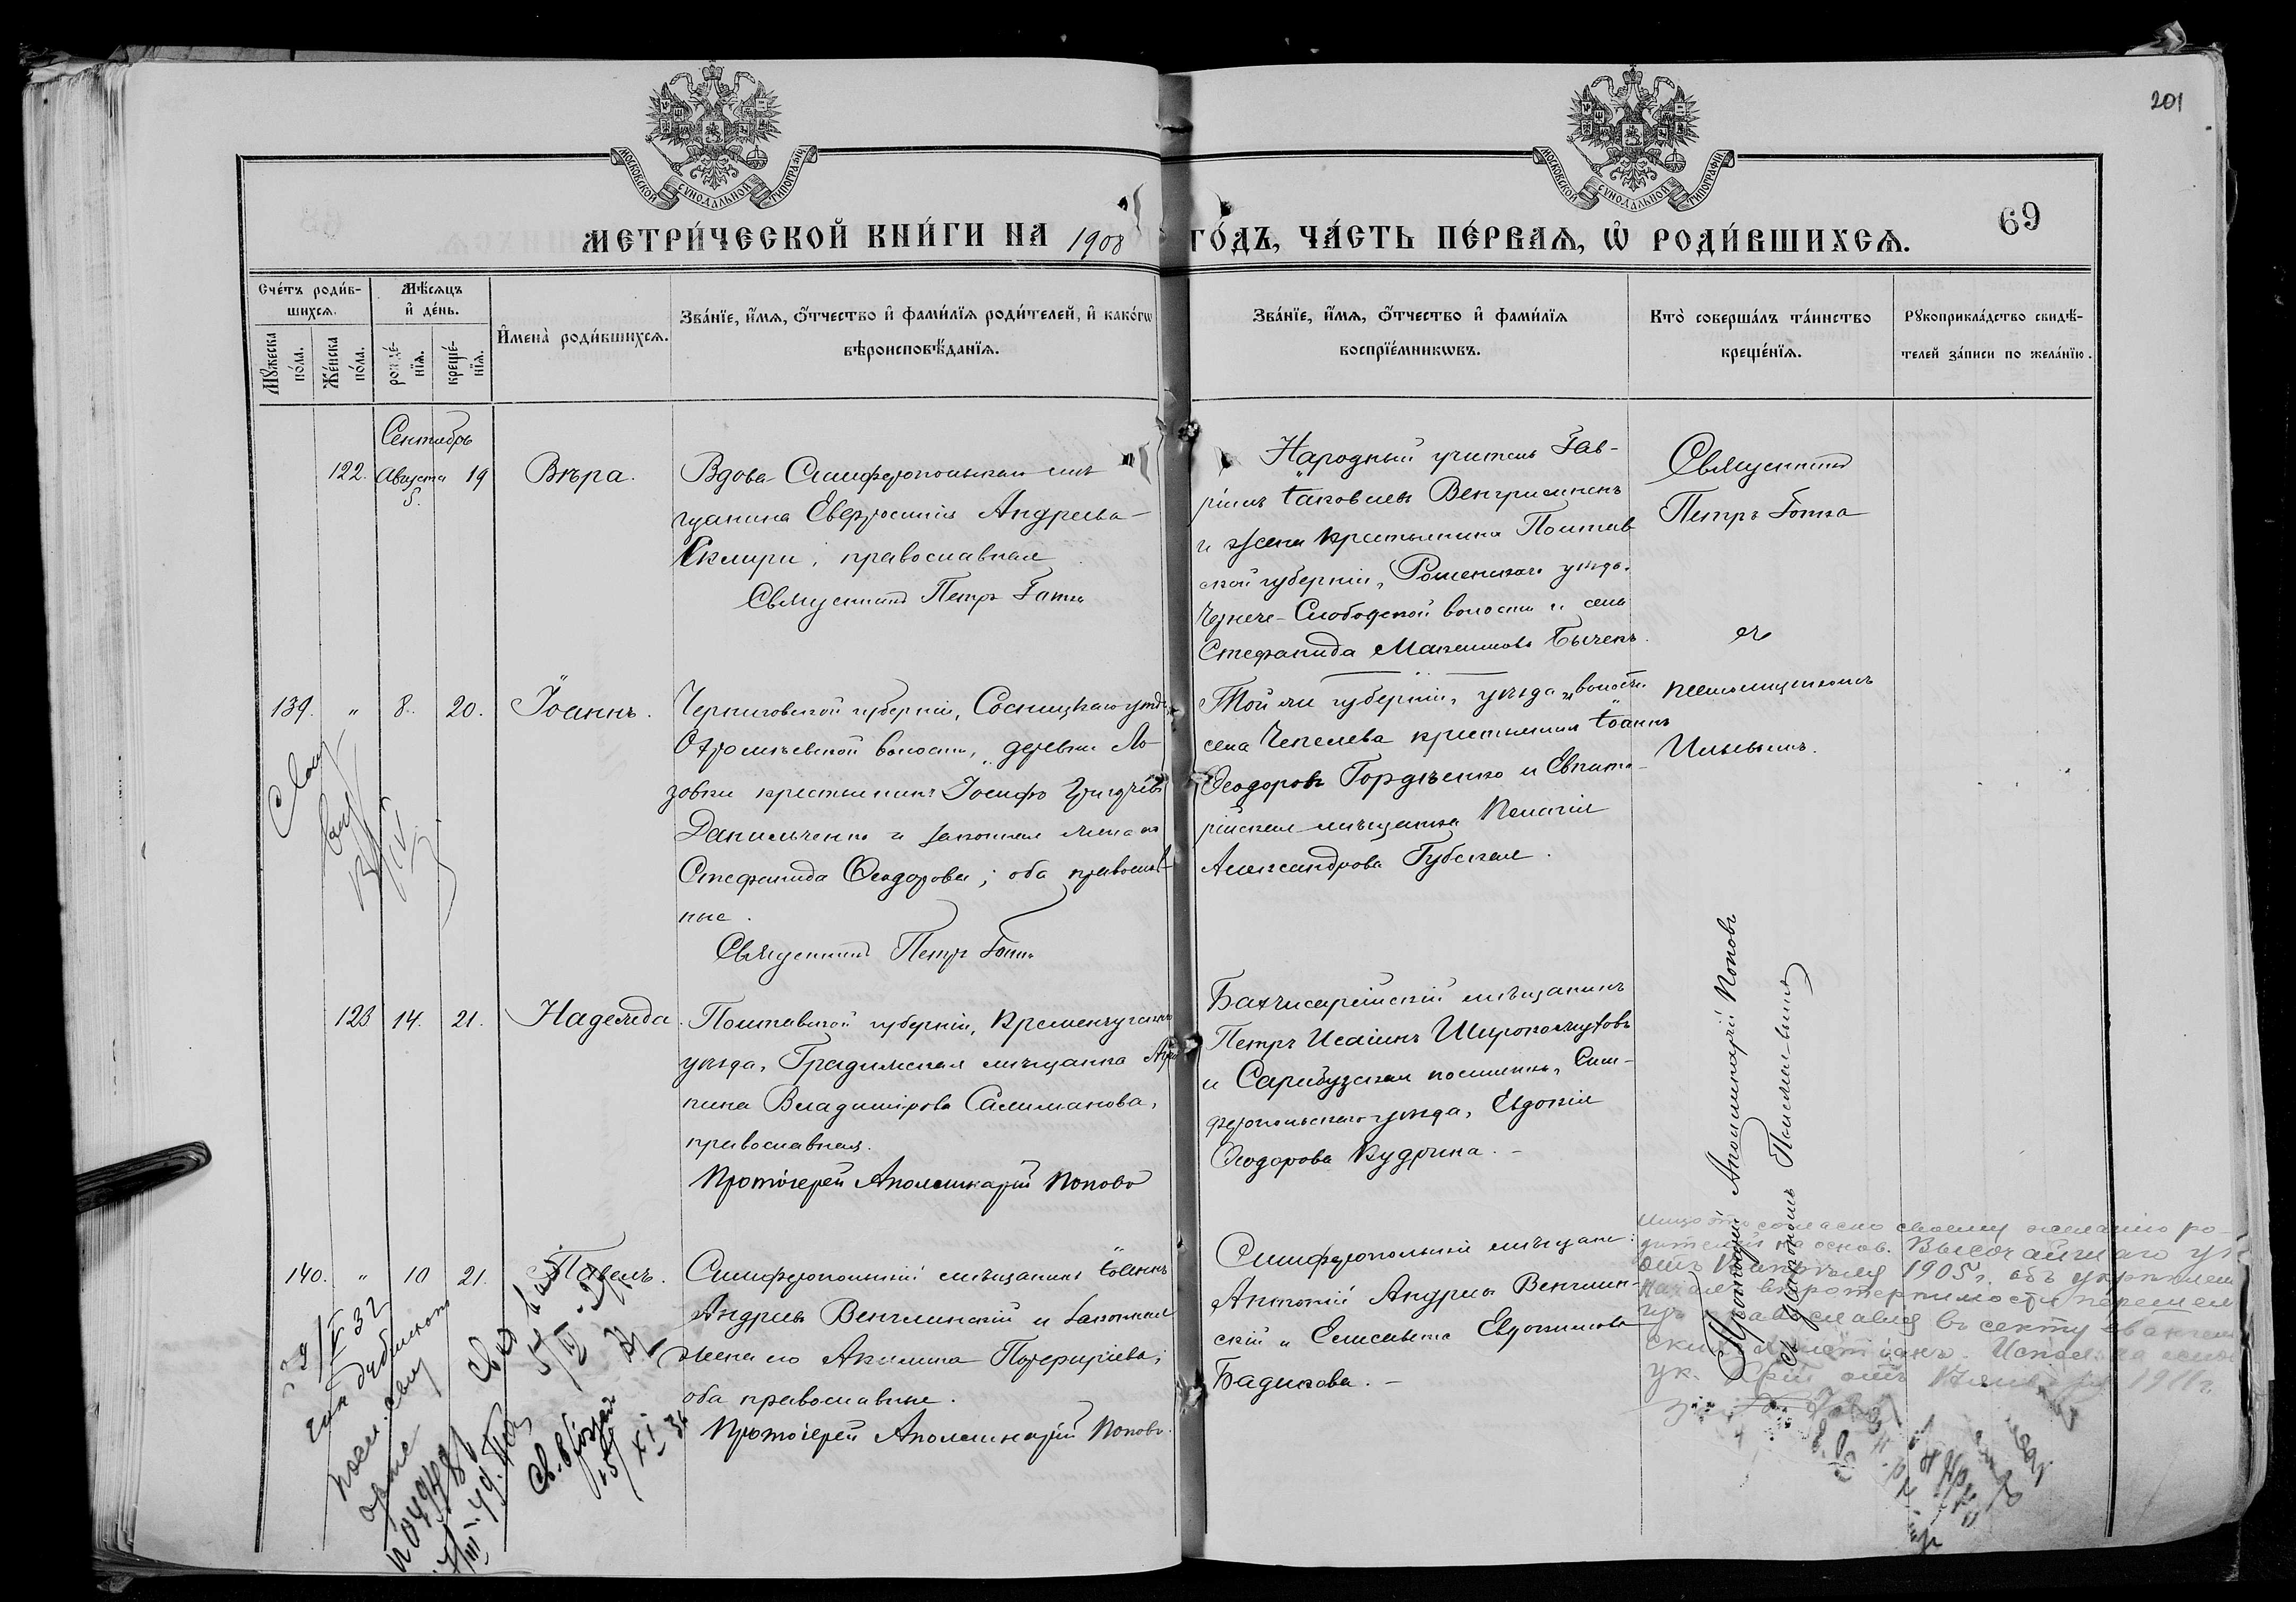 201
МОСКОВСКОЙ СУНОДАЛЬНОЙ ТИПОГРАФІИ
МОСКОВСКОЙ СУНОДАЛЬНОЙ ТИПОГРАФІИ
МЕТРИ́ЧЕСКОЙ КНИ́ГИ НА 1908 ГО́ДЪ, ЧА́СТЬ ПЕ́РВАѦ, Ѡ҆ РОДИ́ВШИХСѦ.
69
Сче́тъ роди́в-
шихсѧ.
Мѣ́сѧцъ
и҆ де́нь.
Мꙋ́жеска по́ла.
Же́нска по́ла.
рожде́-нїѧ.
креще́-нїѧ.
И҆мена̀ роди́вшихсѧ.
Зва́нїе, и҆́мѧ, ѻ҆́тчество и҆ фами́лїѧ роди́телей, и҆ како́гѡ
вѣроисповѣ́данїѧ.
Зва́нїе, и҆́мѧ, ѻ҆́тчество и҆ фами́лїѧ
воспрїе́мникѡвъ.
Кто̀ соверша́лъ та́инство
креще́нїѧ.
Рꙋкоприкла́дство свидѣ́-
телей за́писи по жела́нїю.
Сентябрь
122. Августа 5. 19 Вѣра.
Вдова Симферопольскаго мѣ-
щанина Евфросинія Андреева
Склири, православная
Священникъ Петръ Готка
Народный учитель Гав-
ріилъ Іаковлевъ Венгриминенъ
и жена крестьянина Полтав
ской губерніи, Роменскаго уѣзда,
Чернече-Слободской волости и села
Стефанида Максимова Быченъ.
Священникъ
Петръ Готка
съ
псаломщикомъ
Ильинымъ.
139. " 8. 20. Іоаннъ.
Черниговской губерніи, Сосницкаго уѣзда,
волости, деревни Ло-
зовки крестьянинъ Іосифъ Григорьевъ
Данильченко и законная жена его
Стефанида Ѳеодорова; оба православ-
ные.
Священникъ Петръ Готка
Той же губерніи, уѣзда и волости
села Чепелева крестьянинъ Іоаннъ
Ѳеодоровъ Гордѣенко и Евпато-
рійская мѣщанка Пелагія
Александрова Губская.
123 14. 21. Надежда.
Полтавской губерніи, Кременчугскаго
уѣзда, Градижская мѣщанка Агри
пина Владимірова Салиманова,
православная.
Протоіерей Аполлинарій Поповъ
Бахчисарайскій мѣщанинъ
Петръ Исаіинъ Широкожуховъ
и Сарабузская поселянка, Сим-
феропольскаго уѣзда, Евдокія
Ѳеодорова Кудрина. -
Протоіерей Аполлинарій Поповъ
съ діакономъ
140. " 10 21. Павелъ.
Симферопольскій мѣщанинъ Іоаннъ
Андреевъ Венглинскій и законная
жена его Акилина Порфиріева;
оба православные.
Протоіерей Аполлинарій Поповъ.
Симферопольскіе мѣщане:
Антоній Андреевъ Венглин-
скій и Елисавета Евдокимова
Бадикова. -
лицо это согласно своему желанію ро-
дителей на основ. Высочайшаго ук
отъ 17 апрѣля 1905 г. объ укрѣплен
началъ вѣротерпимости перешел
изъ православія въ секту евангел
ски христіанъ.
1911 г.